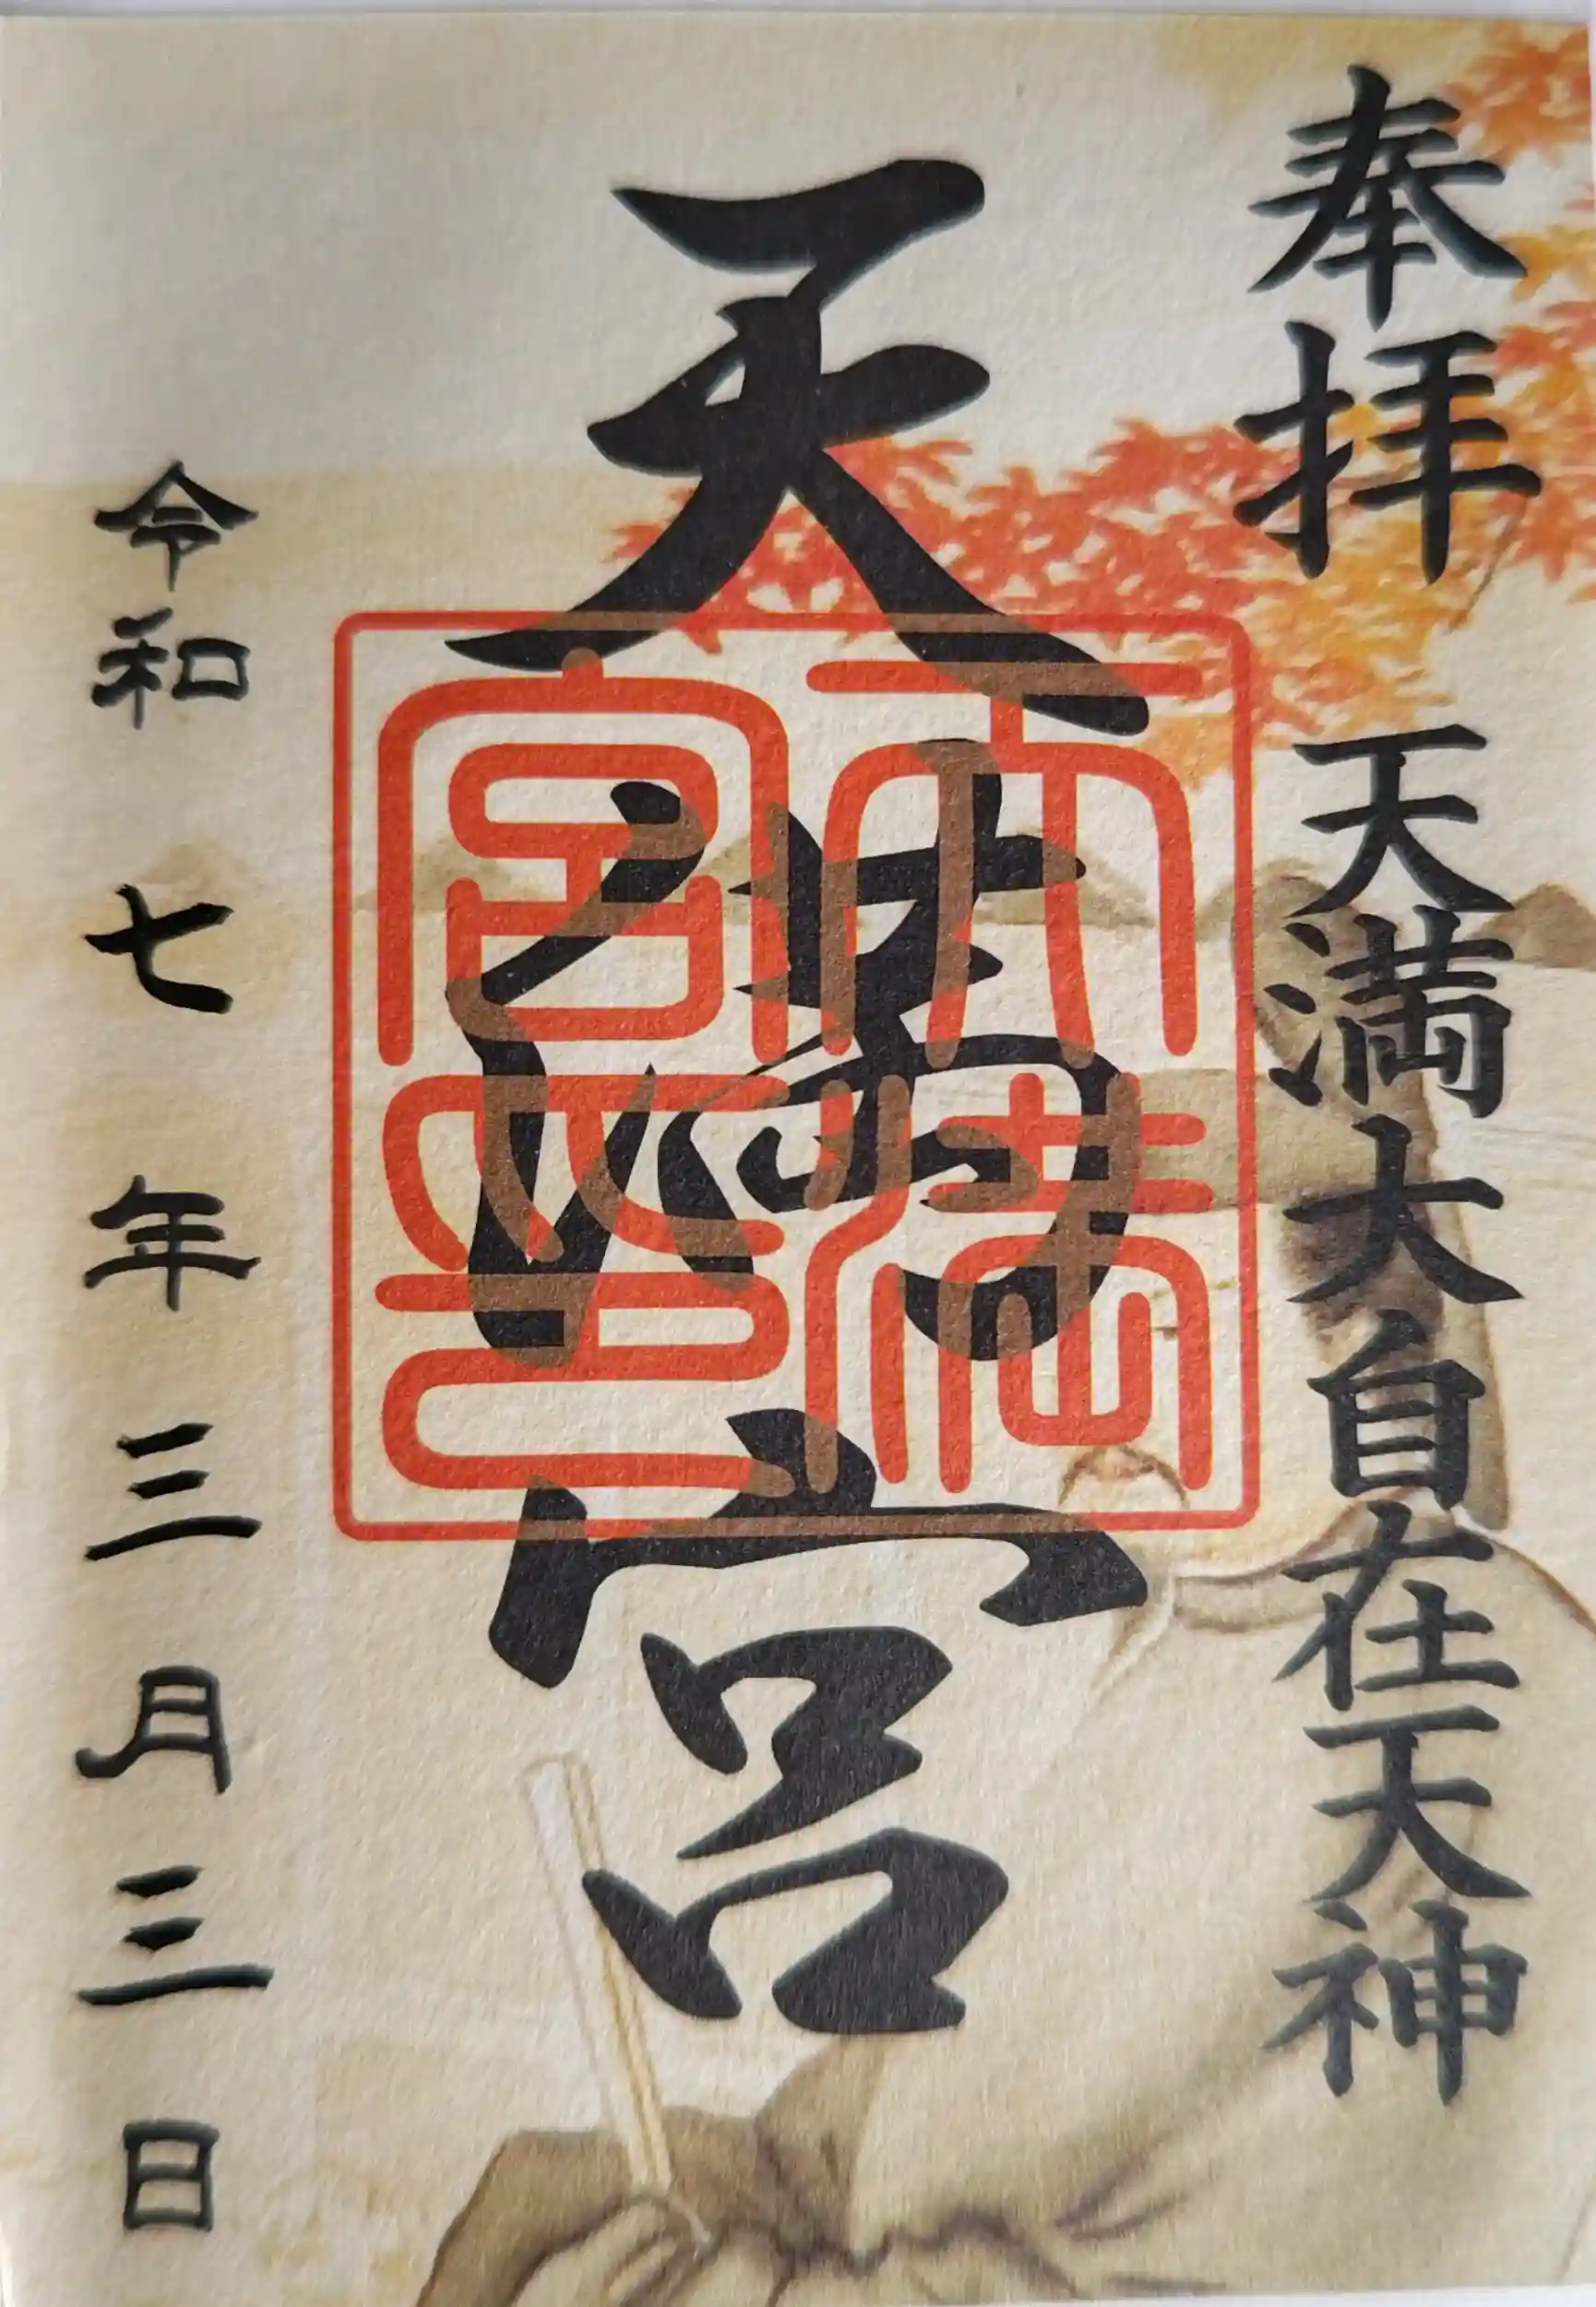 奉拝 天満大自在天神
天満宮
天満宮印
令和七年三月三日